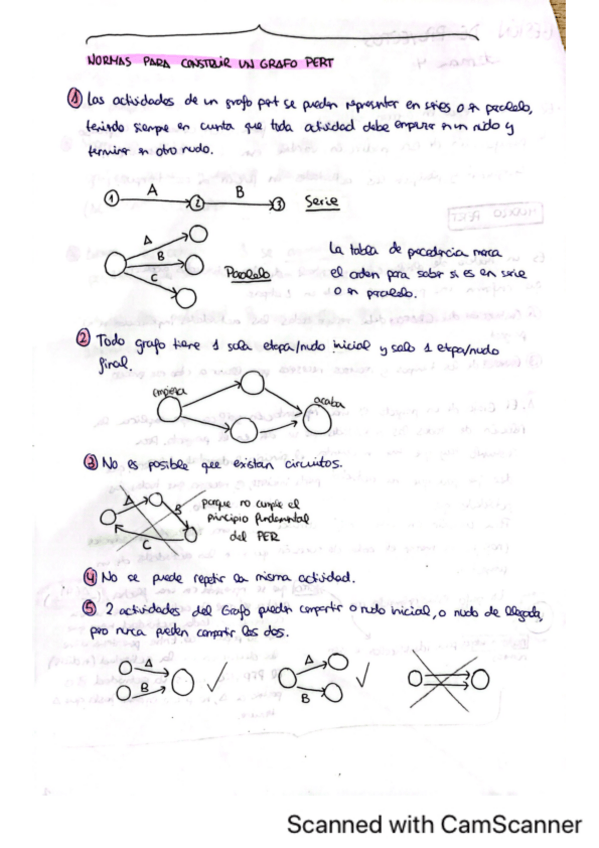 NORMAS PARA CONSTRUIR UN GRAFO PERT
① Las actividades de un grafo pert se pueden representar en series o en paralelo,
teniendo siempre en cuenta que toda actividad debe empezar en un nudo y
terminar en otro nudo.
A B
1 2 3 Serie
A
B
C
Paralelo
La tabla de precedencia marca
el orden para saber si es en serie
o en paralelo.
② Todo grafo tiene 1 sola etapa/nudo inicial y solo 1 etapa/nudo
final.
empieza
acaba
③ No es posible que existan circuitos.
A
B
C
porque no cumple el
principio fundamental
del PER
④ No se puede repetir la misma actividad.
⑤ 2 actividades del Grafo pueden compartir o nudo inicial, o nudo de llegada,
pero nunca pueden compartir los dos.
A
B
✓
A
B
✓
Scanned with CamScanner